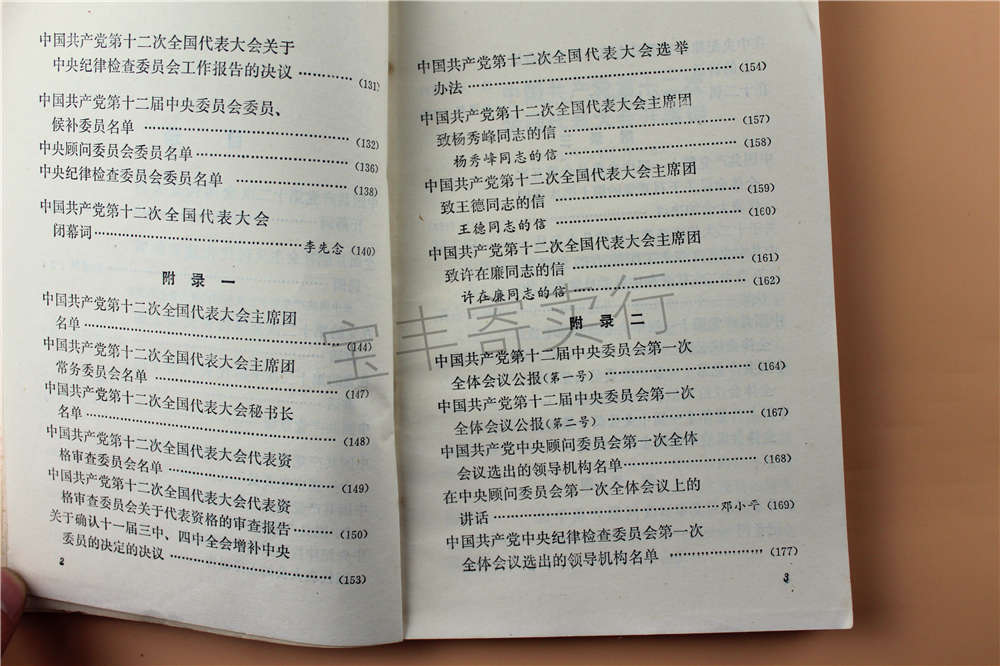 中国共产党第十二次全国代表大会关于
中央纪律检查委员会工作报告的决议 ………… (131)
中国共产党第十二届中央委员会委员、
候补委员名单 ………………………… (132)
中央顾问委员会委员名单 ………………… (136)
中央纪律检查委员会委员名单 …………… (138)
中国共产党第十二次全国代表大会
闭幕词 ………………………… 李先念 (140)
附录一
中国共产党第十二次全国代表大会主席团
名单 ………………………………… (144)
中国共产党第十二次全国代表大会主席团
常务委员会名单 ……………………… (147)
中国共产党第十二次全国代表大会秘书长
名单 ………………………………… (148)
中国共产党第十二次全国代表大会代表资
格审查委员会名单 …………………… (149)
中国共产党第十二次全国代表大会代表资
格审查委员会关于代表资格的审查报告 …… (150)
关于确认十一届三中、四中全会增补中央
委员的决定的决议 …………………… (153)
2
中国共产党第十二次全国代表大会选举
办法 ………………………………… (154)
中国共产党第十二次全国代表大会主席团
致杨秀峰同志的信 …………………… (157)
杨秀峰同志的信 ……………………… (158)
中国共产党第十二次全国代表大会主席团
致王德同志的信 ……………………… (159)
王德同志的信 ………………………… (160)
中国共产党第十二次全国代表大会主席团
致许在廉同志的信 …………………… (161)
许在廉同志的信 ……………………… (162)
附录二
中国共产党第十二届中央委员会第一次
全体会议公报(第一号) ………………… (164)
中国共产党第十二届中央委员会第一次
全体会议公报(第二号) ………………… (167)
中国共产党中央顾问委员会第一次全体
会议选出的领导机构名单 ……………… (168)
在中央顾问委员会第一次全体会议上的
讲话 ………………………… 邓小平 (169)
中国共产党中央纪律检查委员会第一次
全体会议选出的领导机构名单 ………… (177)
3
宝丰寄卖行